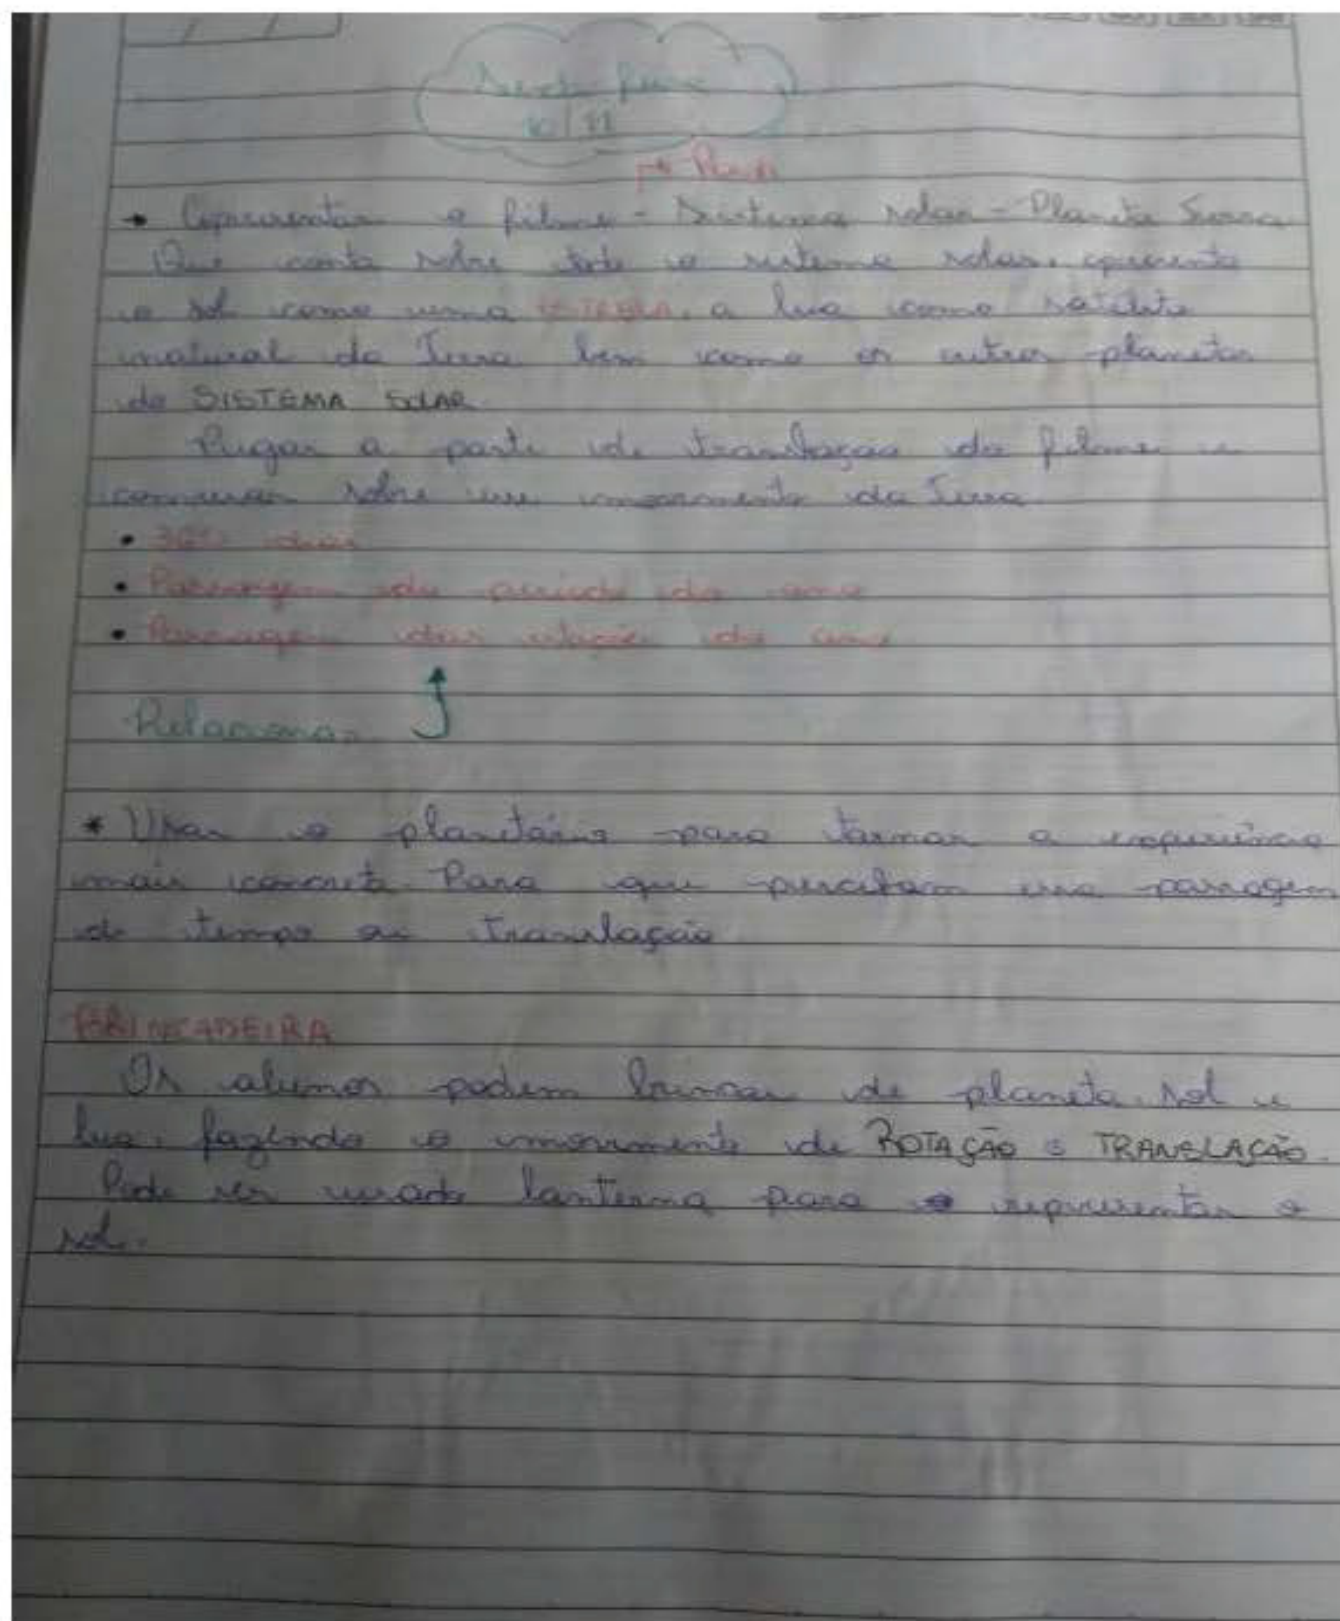 Sexta-feira
10/11
→ Apresentar o filme - Sistema solar - Planeta Terra
Que conta sobre todo o sistema solar, apresenta
o sol como uma ESTRELA, a lua como satélite
natural da Terra bem como os outros planetas
do SISTEMA SOLAR.
Pegar a parte de translação do filme e
conversar sobre esse movimento da Terra
• 365 dias
• Passagem do período do ano
• Passagem das estações do ano
Relacionar
* Usar o planetário para tornar a experiência
mais concreta. Para que percebam essa passagem
de tempo as translação
BRINCADEIRA
Os alunos podem brincar de planeta, sol e
lua, fazendo o movimento de ROTAÇÃO e TRANSLAÇÃO.
Pode ser usada lanterna para representar o
sol.